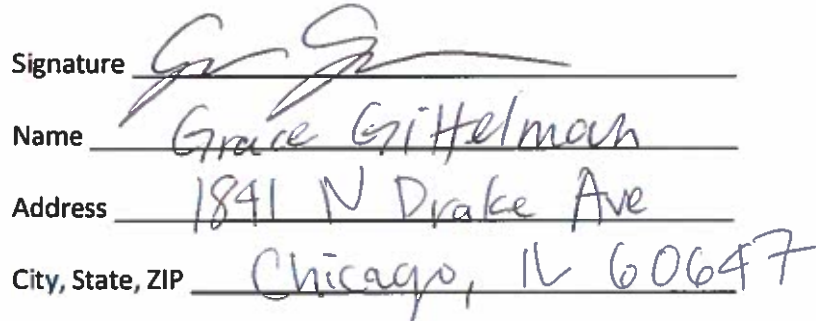 Signature
Name Grace Gittelman
Address 1841 N Drake Ave
City, State, ZIP Chicago, IL 60647